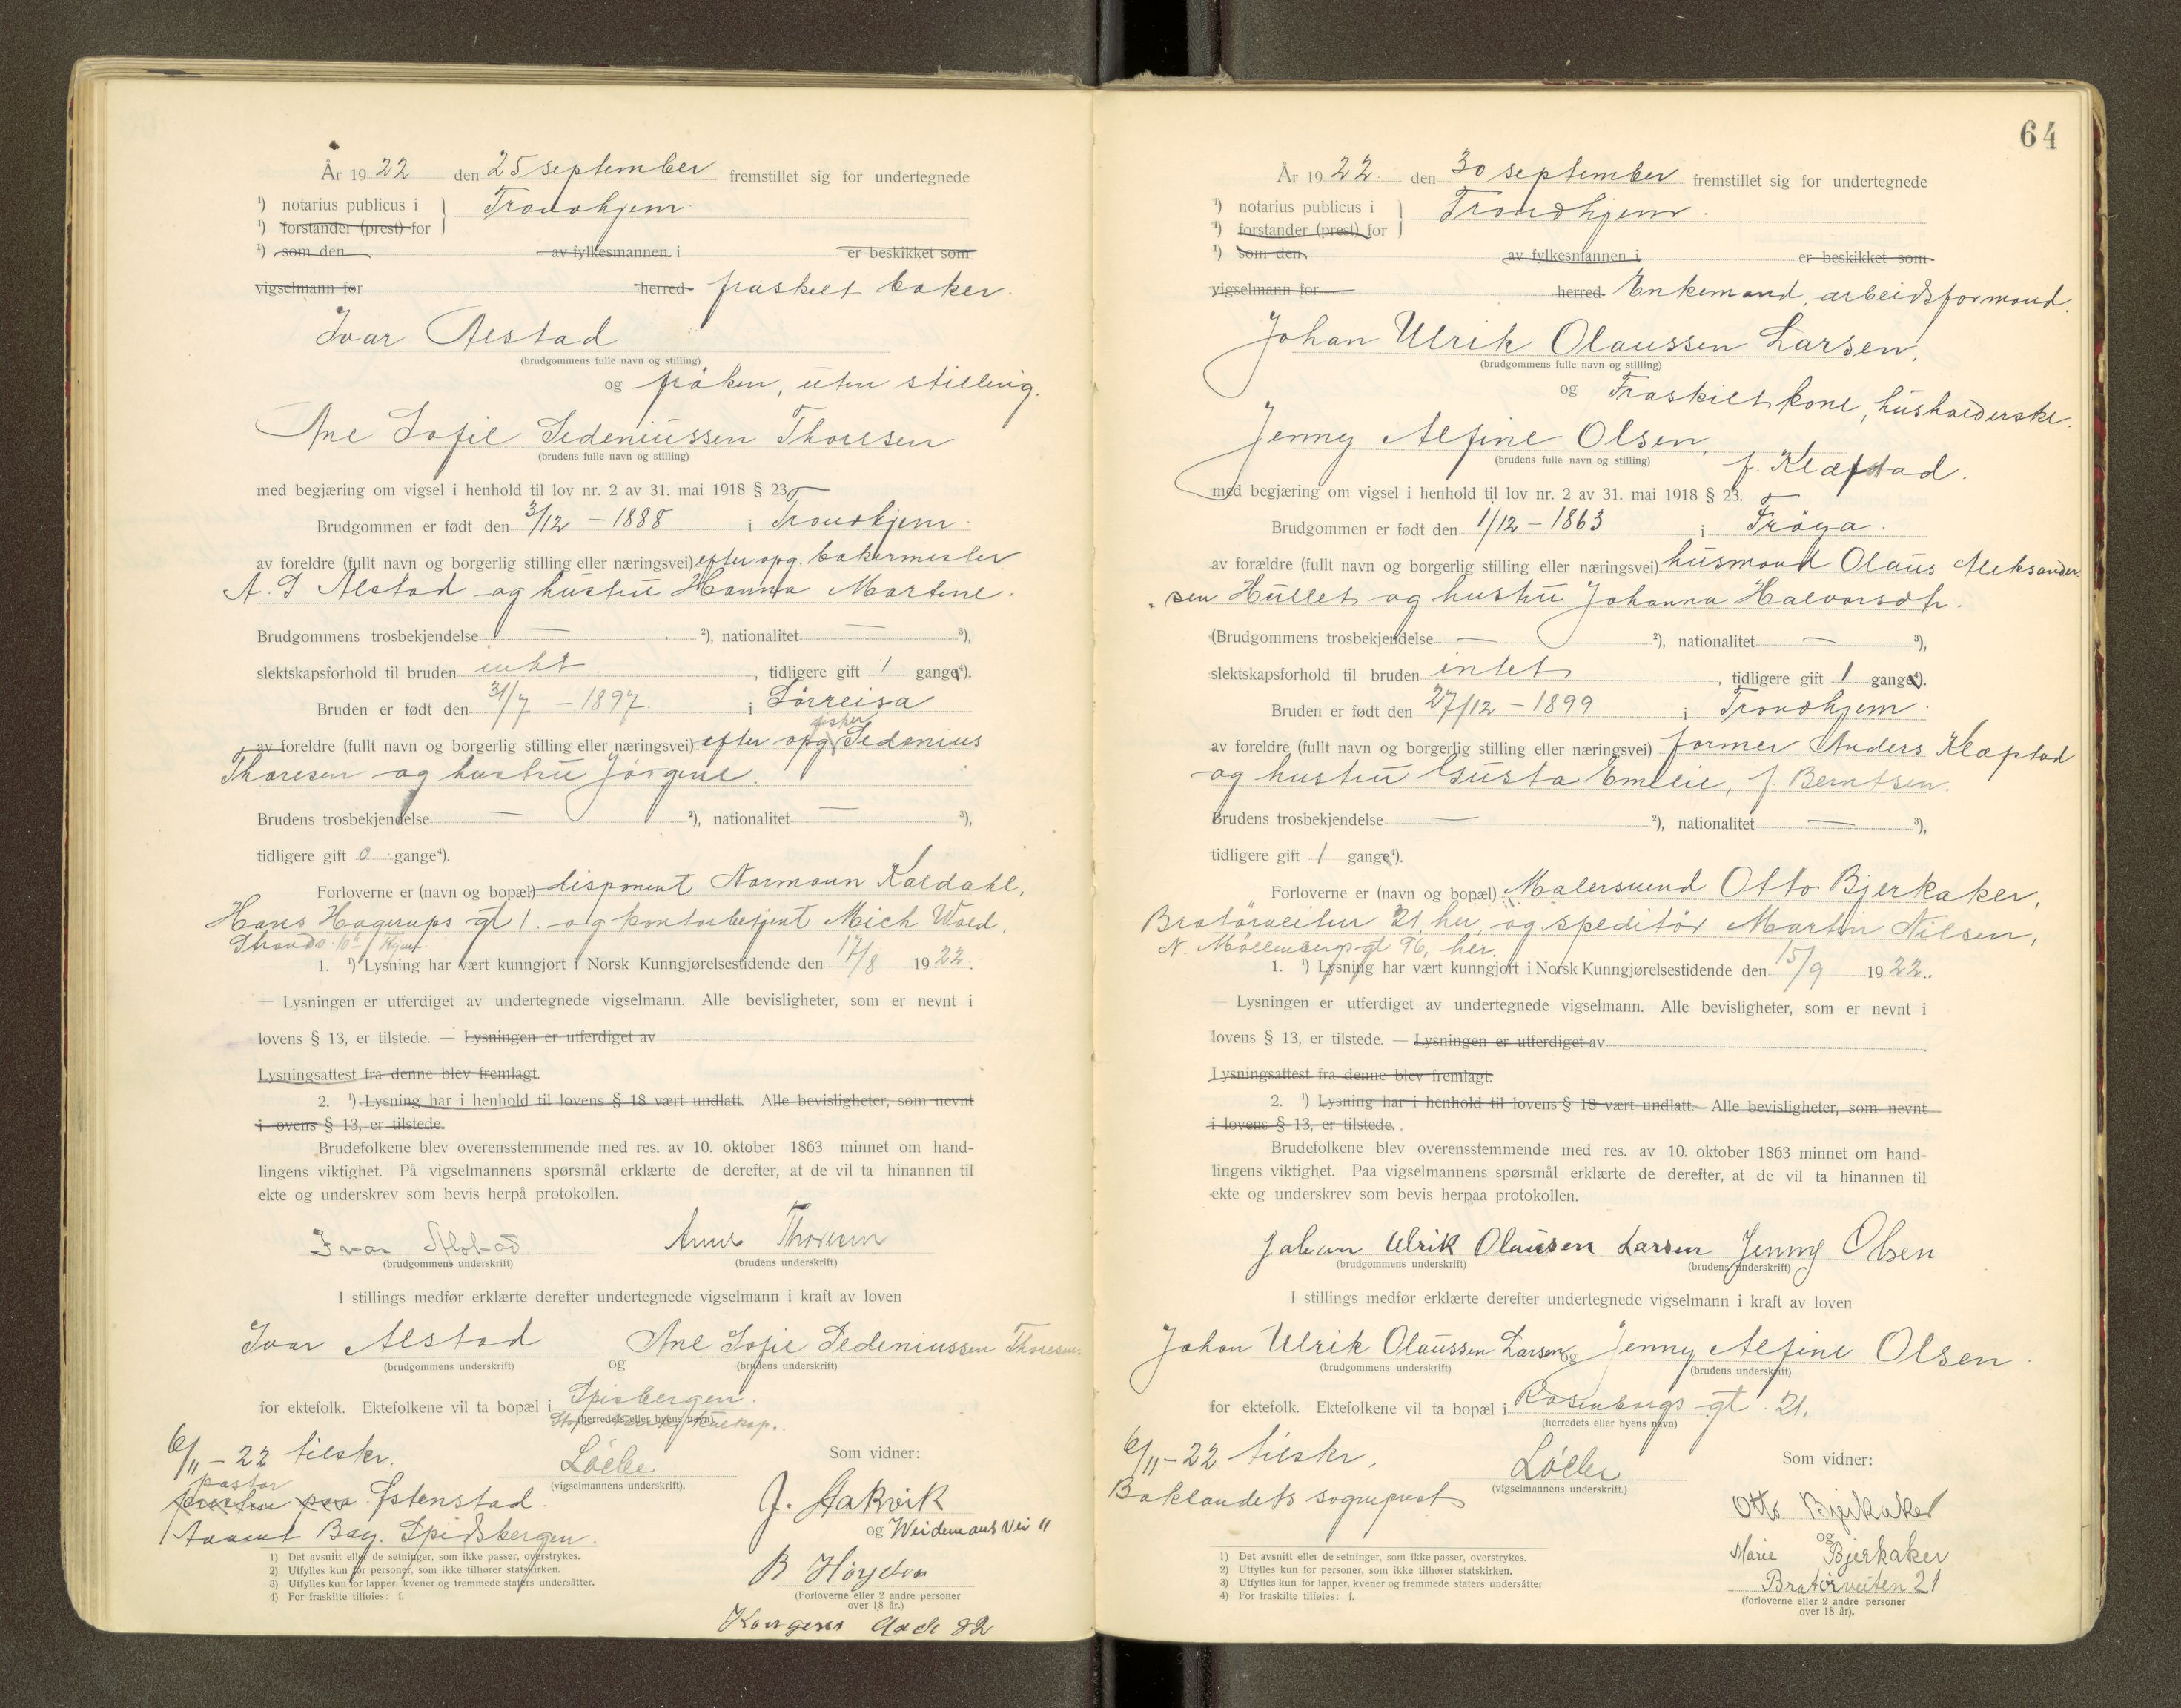 År 1922 den 25 september fremstillet sig for undertegnede
¹) notarius publicus i } Trondhjem
¹) forstander (prest) for
¹) som den av fylkesmannen i er beskikket som
vigselmann for herred fraskilt baker.
Ivar Alstad
(brudgommens fulle navn og stilling)
og frøken, uten stilling.
Ane Sofie Sedeniussen Thoresen
(brudens fulle navn og stilling)
med begjæring om vigsel i henhold til lov nr. 2 av 31. mai 1918 § 23.
Brudgommen er født den 3/12 – 1888 i Trondhjem.
av foreldre (fullt navn og borgerlig stilling eller næringsvei) efter opg. bakermester
A. I Alstad og hustru Hanna Martine.
Brudgommens trosbekjendelse — ²), nationalitet — ³),
slektskapsforhold til bruden intet, tidligere gift 1 gange⁴).
Bruden er født den 31/7 – 1897. i Sørreisa
av foreldre (fullt navn og borgerlig stilling eller næringsvei) efter opg fisker Sedenius
Thoresen og hustru Jørgine.
Brudens trosbekjendelse — ²), nationalitet — ³),
tidligere gift 0 gange⁴).
Forloverne er (navn og bopæl) disponent Normann Kaldahl,
Hans Hagerups gt 1. og kontorbetjent Mich Wold,
1. ¹) Lysning har vært kunngjort i Norsk Kunngjørelsestidende den 17/8 1922.
— Lysningen er utferdiget av undertegnede vigselmann. Alle bevisligheter, som er nevnt i
lovens § 13, er tilstede. — Lysningen er utferdiget av
Lysningsattest fra denne blev fremlagt.
2. ¹) Lysning har i henhold til lovens § 18 vært undlatt. Alle bevisligheter, som nevnt
i ovens § 13, er tilstede.
Brudefolkene blev overensstemmende med res. av 10. oktober 1863 minnet om hand-
lingens viktighet. På vigselmannens spørsmål erklærte de derefter, at de vil ta hinannen til
ekte og underskrev som bevis herpå protokollen.
Ivar Alstad Anne Thoresen
(brudgommens underskrift) (brudens underskrift)
I stillings medfør erklærte derefter undertegnede vigselmann i kraft av loven
Ivar Alstad og Ane Sofie Sedeniussen Thoresen.
(brudgommens underskrift) (brudens underskrift)
for ektefolk. Ektefolkene vil ta bopæl i Spisbergen.
(herredets eller byens navn)
6/11 – 22 tilskr. Løchen Som vidner:
(vigselmannens underskrift).
pastor
Østenstad.
J. Stakvik
Advent Bay. Spidsbergen.
og Weidemans vei 11
B Høydal
1) Det avsnitt eller de setninger, som ikke passer, overstrykes.
2) Utfylles kun for personer, som ikke tilhører statskirken.
3) Utfylles kun for lapper, kvener og fremmede staters undersåtter.
4) For fraskilte tilføies: f.
(Forloverne eller 2 andre personer
over 18 år.)
Kongens Gade 82
64
År 1922 den 30 september fremstillet sig for undertegnede
¹) notarius publicus i } Trondhjem.
¹) forstander (prest) for
¹) som den av fylkesmannen i er beskikket som
vigselmann for herred Enkemand, arbeidsformand.
Johan Ulrik Olaussen Larsen,
(brudgommens fulle navn og stilling)
og Fraskilt kone, husholderske.
Jenny Alfine Olsen,
(brudens fulle navn og stilling) f. Klæfstad.
med begjæring om vigsel i henhold til lov nr. 2 av 31. mai 1918 § 23.
Brudgommen er født den 1/12 – 1863 i Frøya.
av forældre (fullt navn og borgerlig stilling eller næringsvei) husmand Olaus Aleksander-
sen Hullet og hustru Johanna Halvorsdtr.
(Brudgommens trosbekjendelse — ²), nationalitet — ³),
slektskapsforhold til bruden intet, tidligere gift 1 gange⁴).
Bruden er født den 27/12 – 1899 i Trondhjem.
av foreldre (fullt navn og borgerlig stilling eller næringsvei) former Anders Klæfstad
og hustru Gusta Emelie, f. Berntsen.
Brudens trosbekjendelse — ²), nationalitet — ³),
tidligere gift 1 gange⁴).
Forloverne er (navn og bopæl) Malersvend Otto Bjerkaker,
Bratørveiten 21, her, og speditør Martin Nilsen,
N. Møllenbergs gt 96, her.
1. ¹) Lysning har vært kunngjort i Norsk Kunngjørelsestidende den 15/9 1922.
— Lysningen er utferdiget av undertegnede vigselmann. Alle bevisligheter, som er nevnt i
lovens § 13, er tilstede. — Lysningen er utferdiget av
Lysningsattest fra denne blev fremlagt.
2. ¹) Lysning har i henhold til lovens § 18 vært undlatt. Alle bevisligheter, som nevnt
i lovens § 13, er tilstede.
Brudefolkene blev overensstemmende med res. av 10. oktober 1863 minnet om hand-
lingens viktighet. Paa vigselmannens spørsmål erklærte de derefter, at de vil ta hinannen til
ekte og underskrev som bevis herpaa protokollen.
Johan Ulrik Olausen Larsen Jenny Olsen
(brudgommens underskrift) (brudens underskrift)
I stillings medfør erklærte derefter undertegnede vigselmann i kraft av loven
Johan Ulrik Olaussen Larsen og Jenny Alfine Olsen.
(brudgommens underskrift) (brudens underskrift)
for ektefolk. Ektefolkene vil ta bopæl i Rosenborgs gt. 21.
(herredets eller byens navn)
6/11 – 22 tilskr. Løchen Som vidner:
Baklandets sogneprest (vigselmannens underskrift.)
Otto Bjerkaker
og
Marie Bjerkaker
Bratørveiten 21
1) Det avsnitt eller de setninger, som ikke passer, overstrykes.
2) Utfylles kun for personer, som ikke tilhører statskirken.
3) Utfylles kun for lapper, kvener og fremmede staters undersåtter
4) For fraskilte tilføies: f.
(forloverne eller 2 andre personer
over 18 år).